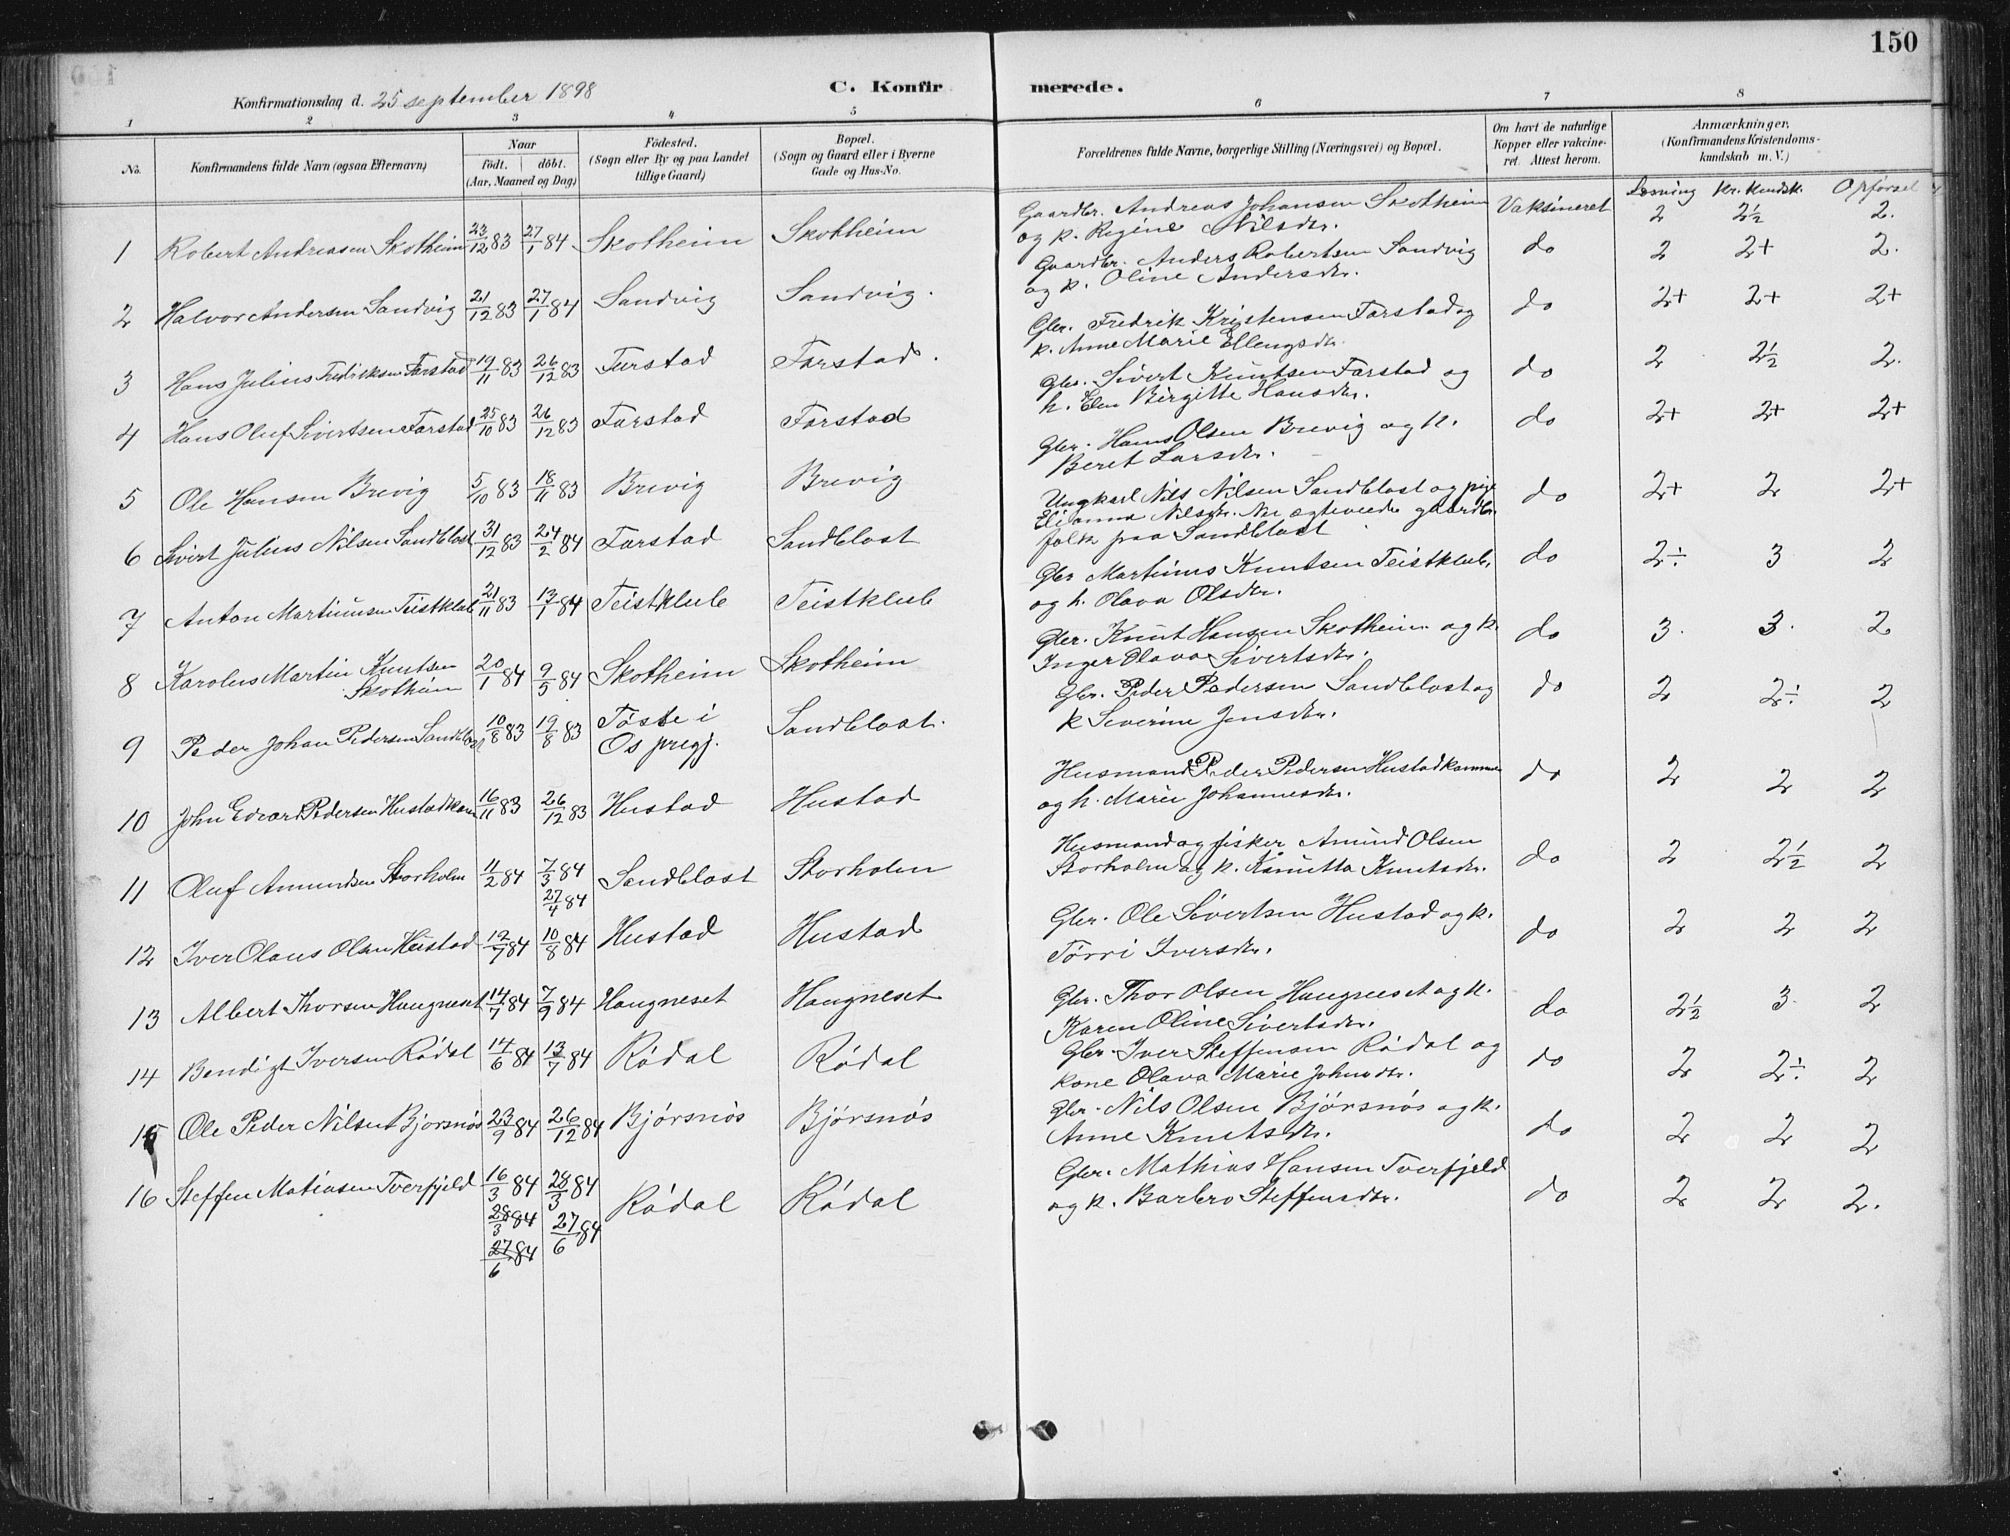 150
Konfirmationsdag d. 25 september 1898
C. Konfirmerede.
1 2 3 4 5 6 7 8
No. Konfirmandens fulde Navn (ogsaa Efternavn) Naar født. døbt. (Aar, Maaned og Dag) Fødested. (Sogn eller By og paa Landet tillige Gaard) Bopæl. (Sogn og Gaard eller i Byerne Gade og Hus-No. Forældrenes fulde Navne, borgerlige Stilling (Næringsvei) og Bopæl. Om havt de naturlige Kopper eller vakcineret. Attest herom. Anmærkninger. (Konfirmandens Kristendomskundskab m. V.)
Læsning Kr. kundsk. Opførsel
1 Robert Andreasen Skotheim 23/12 83 27/1 84 Skotheim Skotheim Gaardbr. Andreas Johansen Skotheim Vaksineret 2 2½ 2.
og k. Regine Nilsdr.
2 Halvor Andersen Sandvig 21/12 83 27/1 84 Sandvig Sandvig. Gaardbr. Anders Robertsen Sandvig do 2 2+ 2.
og k. Oline Andersdr.
3 Hans Julius Fredriksen Farstad 19/11 83 26/12 83 Farstad Farstad. Gbr. Fredrik Kristensen Farstad og do 2+ 2+ 2+
k. Anne Marie Ellengsdr.
4 Hans Oluf Sivertsen Farstad 25/10 83 26/12 83 Farstad Farstad Gbr. Sivert Knutsen Farstad og do 2 2½ 2.
h. Elen Birgitte Hansdr.
5 Ole Hansen Brevig 5/10 83 18/11 83 Brevig Brevig Gbr. Hans Olsen Brevig og k. do 2+ 2+ 2+
Beret Larsdr.
6 Sivert Julius Nilsen Sandblost 31/12 83 24/2 84 Farstad Sandblost Ungkarl Nils Nilsen Sandblost og pige do 2+ 2 2+
Elianna Nilsdr. Nu ægteviede gaardbr.
folk paa Sandblost
7 Anton Martinusen Teistklub 21/11 83 13/1 84 Teistklub Teistklub Gbr Martinus Knutsen Teistklub, do 2÷ 3 2
og h. Olava Olsdr.
8 Karolus Martin Knutsen Skotheim 20/1 84 9/5 84 Skotheim Skotheim Gbr. Knut Hansen Skotheim og k. do 3. 3. 2
Inger Olava Sivertsdr.
9 Peder Johan Pedersen Sandblost 10/8 83 19/8 83 Tøste i Os pregj. Sandblost. Gbr. Peder Pedersen Sandblost og do 2 2÷ 2
k Severine Jensdr.
10 John Edvard Pedersen Hustadkam 16/11 83 26/12 83 Hustad Hustad Husmand Peder Pedersen Hustadkammen do 2 2 2
og h. Marie Johannesdr.
11 Oluf Amundsen Storholm 11/2 84 7/3 84 27/4 84 Sandblost Storholen Husmand og fisker Amund Olsen do 2 2½ 2
Storholm og k. Knutsdr.
12 Iver Olaus Olsen Hustad 12/7 84 10/8 84 Hustad Hustad Gbr. Ole Sivertsen Hustad og k. do 2 2 2
Tørri Iversdr.
13 Albert Thorsen Haugneset 14/7 84 7/9 84 Haugneset Haugneset Gbr. Thor Olsen Haugneset og k. do 2½ 3. 2
Karen Oline Sivertsdr.
14 Bendigt Iversen Rødal 14/6 84 13/7 84 Rødal Rødal Gbr. Iver Steffensen Rødal og do 2 2÷ 2
kone Olava Marie Johnsdr.
15 Ole Peder Nilsen Bjørsnøs 23/9 84 26/12 84 Bjørsnøs Bjørsnøs Gbr. Nils Olsen Bjørsnøs og k. do 2 2 2
Anne Knutsdr.
16 Steffen Matiasen Tverfjeld 16/3 84 28/3 84 Rødal Rødal Gbr. Mathias Hansen Tverfjeld do 2 2 2.
28/3 84 27/6 84 og k. Barbro Steffensdr.
27/6 84